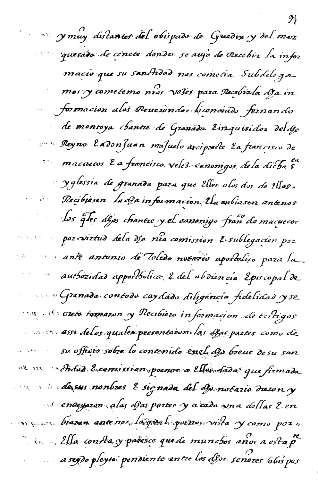 y muy distantes del obispado de Guadix y del mar
quesado de cenete donde se avia de Recibir la infor
macion que su santidad nos cometia Subdelega
mos y cometemos nras vozes para Recibir la dha in
formacion a los Reverendos licenciado fernando
de montoya chantre de Granada E inquisidor del dho
Reyno E a don Juan arcipreste E a francisco de
E a francisco velez canonigos de la dicha sta
yglessia de granada para que Ellos o los dos de Ellos
Recibiesen la dha informacion E la enbiasen ante nos
los qles dhos chantre y el canonigo franco de
por virtud de la dha nra comission E subdelegacion por
ante antonio de Toledo notario apostolico para la
authoridad appostholica E del audiencia Episcopal de
Granada con todo cuydado diligencia fidelidad y se
creto tomaron y Recibieron informacion de testigos
assi de los quales presentaron las dhas partes como de
su officio sobre lo contenido en el dho breve de su san
tidad E comission a Ellos dada que firmada
de sus nombres E signada del dho notario dieron y
entregaron a las dhas partes y a cada una dellas E en
biaron ante nos la qual por nos vista y como por
Ella consta y parece que de muchos años a esta pte
a avido pleyto pendiente entre los dhos señores obispos